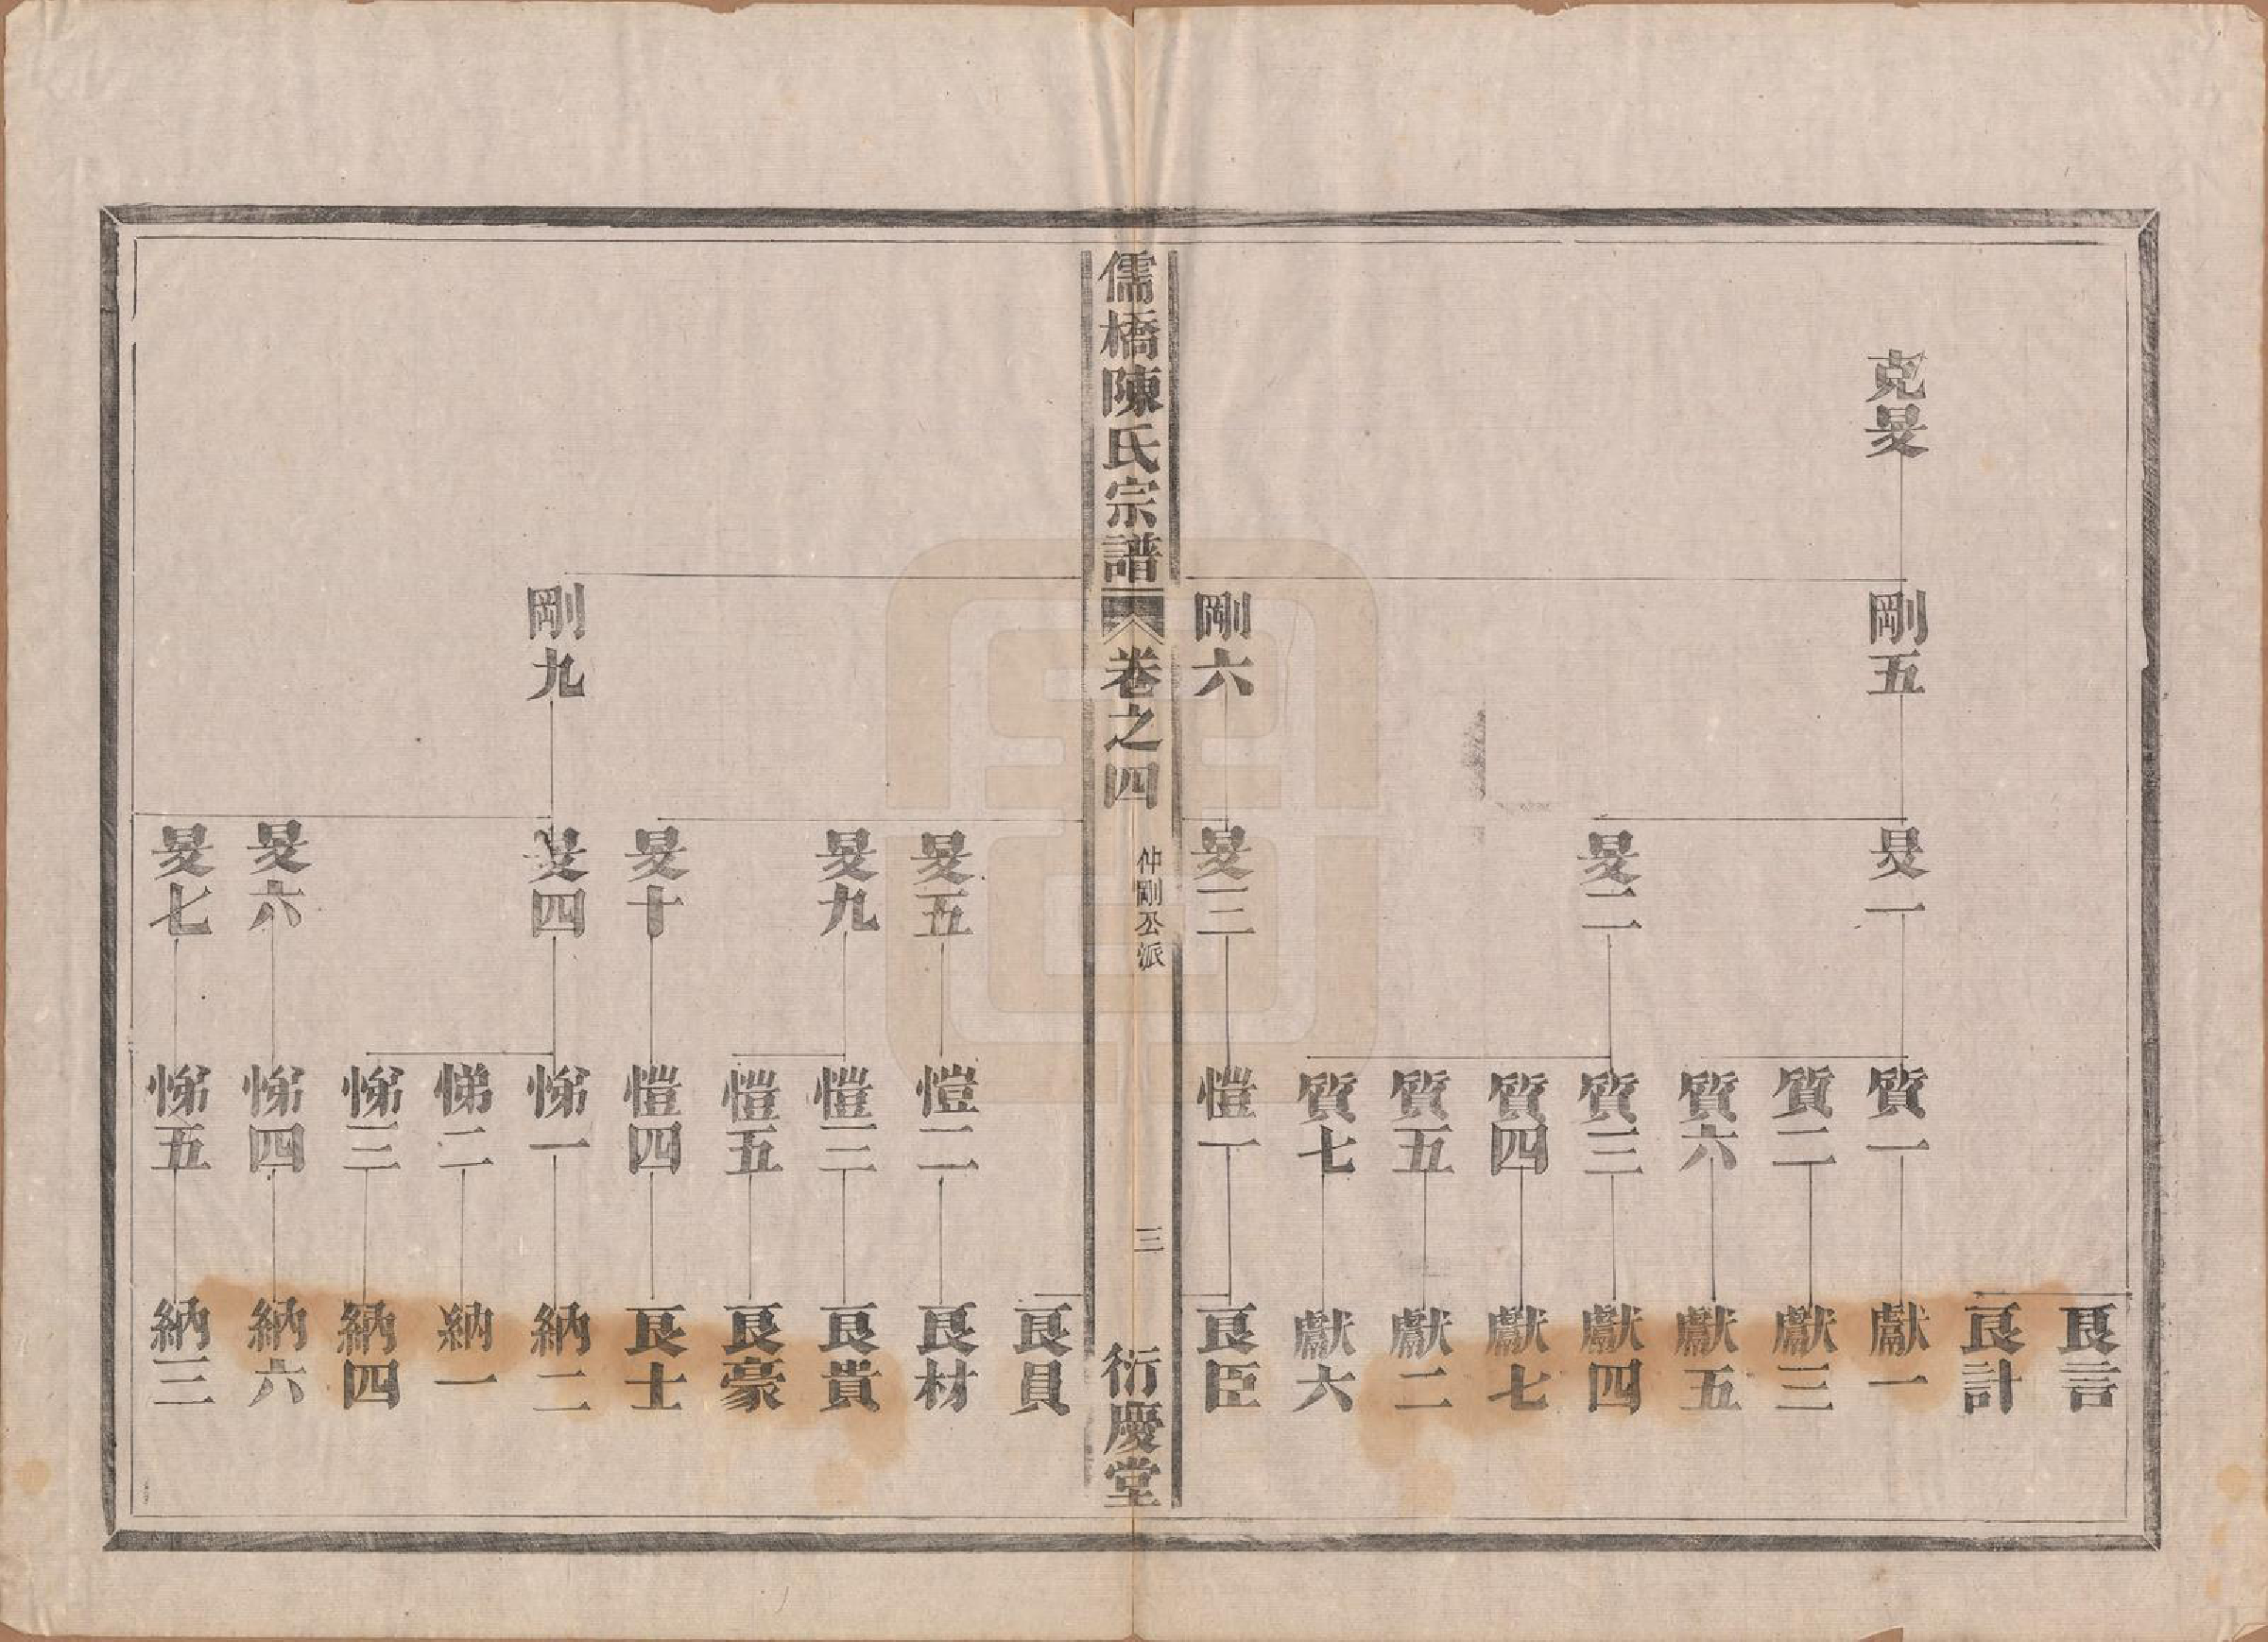 克旻
剛五
旻一
旻二
質一
質二
質六
質三
質四
質五
質七
良言
良計
獻一
獻三
獻五
獻四
獻七
獻二
獻六
剛六
旻三
愷一
良臣
儒橋陳氏宗譜
卷之四
仲剛公派
三
衍慶堂
良員
旻五
愷二
良材
旻九
愷三
良貴
愷五
良豪
旻十
愷四
良士
剛九
旻四
悌一
納二
悌二
納一
悌三
納四
旻六
悌四
納六
旻七
悌五
納三